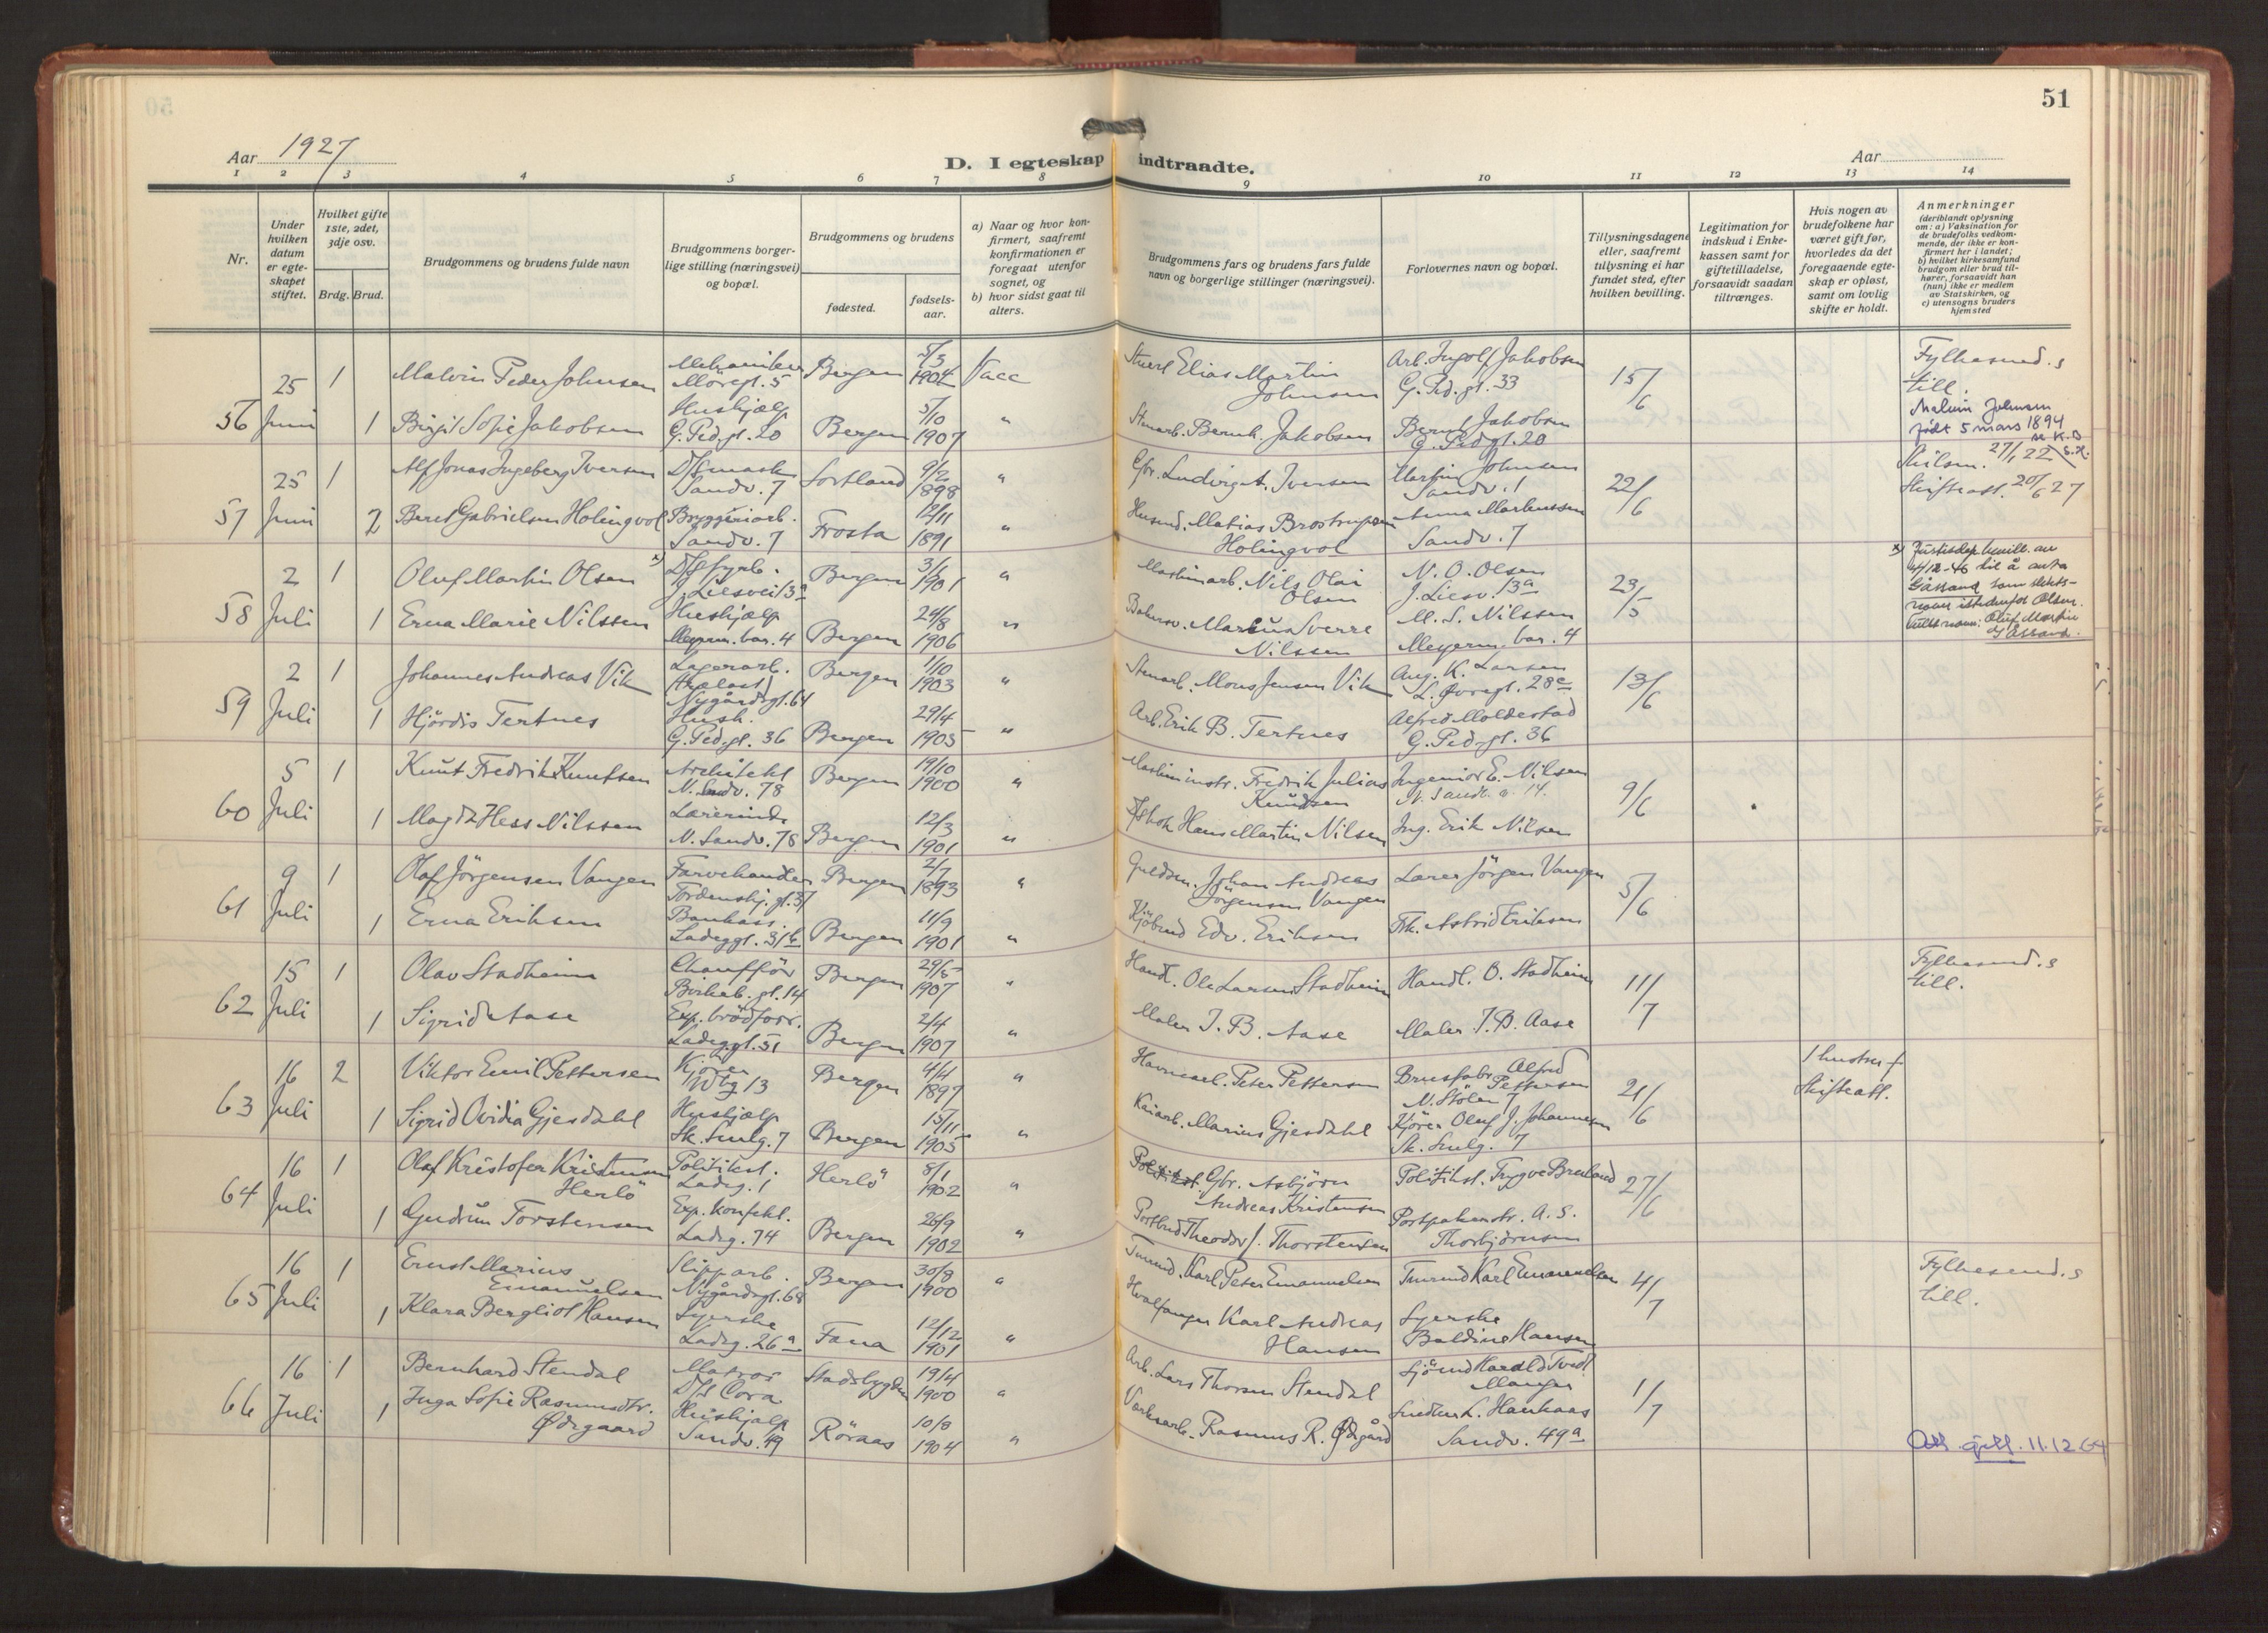 50
51
Aar 1927
D. I egteskap indtraadte.
Aar
1 2 3 4 5 6 7 8 9 10 11 12 13 14
Nr.
Under hvilken datum er egteskapet stiftet.
Hvilket gifte 1ste, 2det, 3dje osv.
Brdg. Brud.
Brudgommens og brudens fulde navn
Brudgommens borgerlige stilling (næringsvei) og bopæl.
Brudgommens og brudens
fødested.
fødselsaar.
a) Naar og hvor konfirmert, saafremt konfirmationen er foregaat utenfor sognet, og
b) hvor sidst gaat til alters.
Brudgommens fars og brudens fars fulde navn og borgerlige stillinger (næringsvei).
Forlovernes navn og bopæl.
Tillysningsdagene eller, saafremt tillysning ei har fundet sted, efter hvilken bevilling.
Legitimation for indskud i Enkekassen samt for giftetilladelse, forsaavidt saadan tiltrænges.
Hvis nogen av brudefolkene har været gift før, hvorledes da det foregaaende egteskap er opløst, samt om lovlig skifte er holdt.
Anmerkninger
(deriblandt oplysning om: a) Vaksination for de brudefolks vedkommende, der ikke er konfirmert her i landet; b) hvilket kirkesamfund brudgom eller brud tilhører, forsaavidt han (nun) ikke er medlem av Statskirken, og c) utensogns bruders hjemsted
56 25 Juni 1 Malvin Peder Johnsen Mekaniker Möregt. 5 Bergen 5/3 1904 Vacc Stuert Elias Martin Johnsen Arb. Ingolf Jakobsen G. Ped.gt. 33 15/6 Fylkesmed.s till.
Malvin Johnsen født 5 mars 1894
1 Birgit Sofie Jakobsen Hushjælp G. Ped.gt. 20 Bergen 5/10 1907 " Stenarb. Bernh. Jakobsen Bernt Jakobsen G. Ped.gt. 20
57 25 Juni 1 Alf Jonas Ingeberg Iversen D/S mask Sandv. 7 Sortland 9/2 1898 " Gbr. Ludvig A. Iversen Martin Johnsen Sandv. 1 22/6 Skilsm. 27/1 22 Skifteatt. 20/6 27
2 Beret Gabrielsen Holingvol Bryggeriarb. Sandv. 7 Frosta 12/11 1891 " Husmd. Matias Brostrupsen Holingvol Anna Markussen Sandv. 7
58 2 Juli 1 Oluf Martin Olsen x) D/S fyrb. J. Liesvei 13a Bergen 3/1 1901 " Maskinarb. Nils Olai Olsen N. O. Olsen J. Liesv. 13a 23/5
x) Justisdep. bevill. av 4/12-46 til å anta Gåssand som slektsnavn istedenfor Olsen. Fullt navn: Oluf Martin Gåssand.
1 Erna Marie Nilssen Hushjælp Meyerm. bar. 4 Bergen 24/8 1906 " Marius Sverre Nilssen M. S. Nilssen Meyerm. bar. 4
59 2 Juli 1 Johannes Andreas Vik Lagerarb. Nygårdsgt. 64 Bergen 1/10 1903 " Stenarb. Mons Jensen Vik Aug. K. Larsen L. Øvregt. 28c 13/6
1 Hjördis Tertnes Hush. G. Ped.gt. 36 Bergen 29/4 1905 " Arb. Erik B. Tertnes Alfred Moldestad G. Ped.gt. 36
60 5 Juli 1 Knut Fredrik Knutsen Arkitekt N. Sandv. 78 Bergen 19/10 1900 " Maskininstr. Fredrik Julius Knudsen Ingeniør E. Nilsen 9/6
1 Magda Hess Nilssen Lærerinde N. Sandv. 78 Bergen 12/3 1901 " Hans Martin Nilsen Ing. Erik Nilsen
61 9 Juli 1 Olaf Jörgensen Vangen Farvehandler Tordenskj. gt. 37 Bergen 2/7 1893 " Guldsm. Johan Andreas Jörgensen Vangen Lærer Jörgen Vangen 5/6
1 Erna Eriksen Bankass. Ladeggt. 31b Bergen 11/9 1901 " Kjöbmd Edv. Eriksen Frk. Astrid Eriksen
62 15 Juli 1 Olav Stadheim Chaufför Birkeb. gt. 14 Bergen 29/5 1907 " Handl. Ole Larsen Stadheim Handl. O. Stadheim 11/7 Fylkesmd.s till.
1 Sigrid Aase Exp. brödforr. Ladeggt. 51 Bergen 2/4 1907 " Maler J. B. Aase Maler J. B. Aase
63 16 Juli 2 Viktor Emil Pettersen Kjörer 13 Bergen 4/4 1897 " Havnearb. Peter Pettersen Brusfabr. Alfred Pettersen N. Stölen 7 21/6 1 hustru † Skifteatt.
1 Sigrid Ovidia Gjesdahl Hushjælp Sk. Smlg. 7 Bergen 15/11 1905 " Kaiarb. Marius Gjesdahl Kjörer Oluf J. Johannesen Sk. Smlg. 7
64 16 Juli 1 Olaf Kristofer Kristensen Herlö Politikst. Ladeg. 1 Herlö 8/1 1902 " Gbr. Asbjörn Andreas Kristensen Politikst. Trygve Breiland 27/6
1 Gudrun Torstensen Exp. konfekt. Ladeg. 74 Bergen 26/9 1902 " Postbud Theodor J. Thorstensen Postpakmstr. A. S. Thorbjörnsen
65 16 Juli 1 Ernst Marius Emanuelsen Skipparb. Nygårdsgt. 68 Bergen 30/8 1900 " Tmrmd. Karl Peter Emanuelsen Tmrmd Karl Emanuelsen 4/7 Fylkesmd.s till.
1 Klara Bergliot Hansen Syerske Ladeg. 26a Fana 12/12 1901 " Hvalfanger Karl Andreas Hansen Syerske Baldine Hansen
66 16 Juli 1 Bernhard Stendal Matros D/S Cora Stadsbygden 19/4 1900 " Arb. Lars Thorsen Stendal Sjömd Harald Tvedt Manger 1/7
1 Inga Sofie Rasmusdtr. Ødegaard Hushjælp Sandv. 49 Röraas 10/8 1904 " Verksarb. Rasmus R. Ødegård Snedker L. Haukaas Sandv. 49a
Att. gitt. 11.12.64